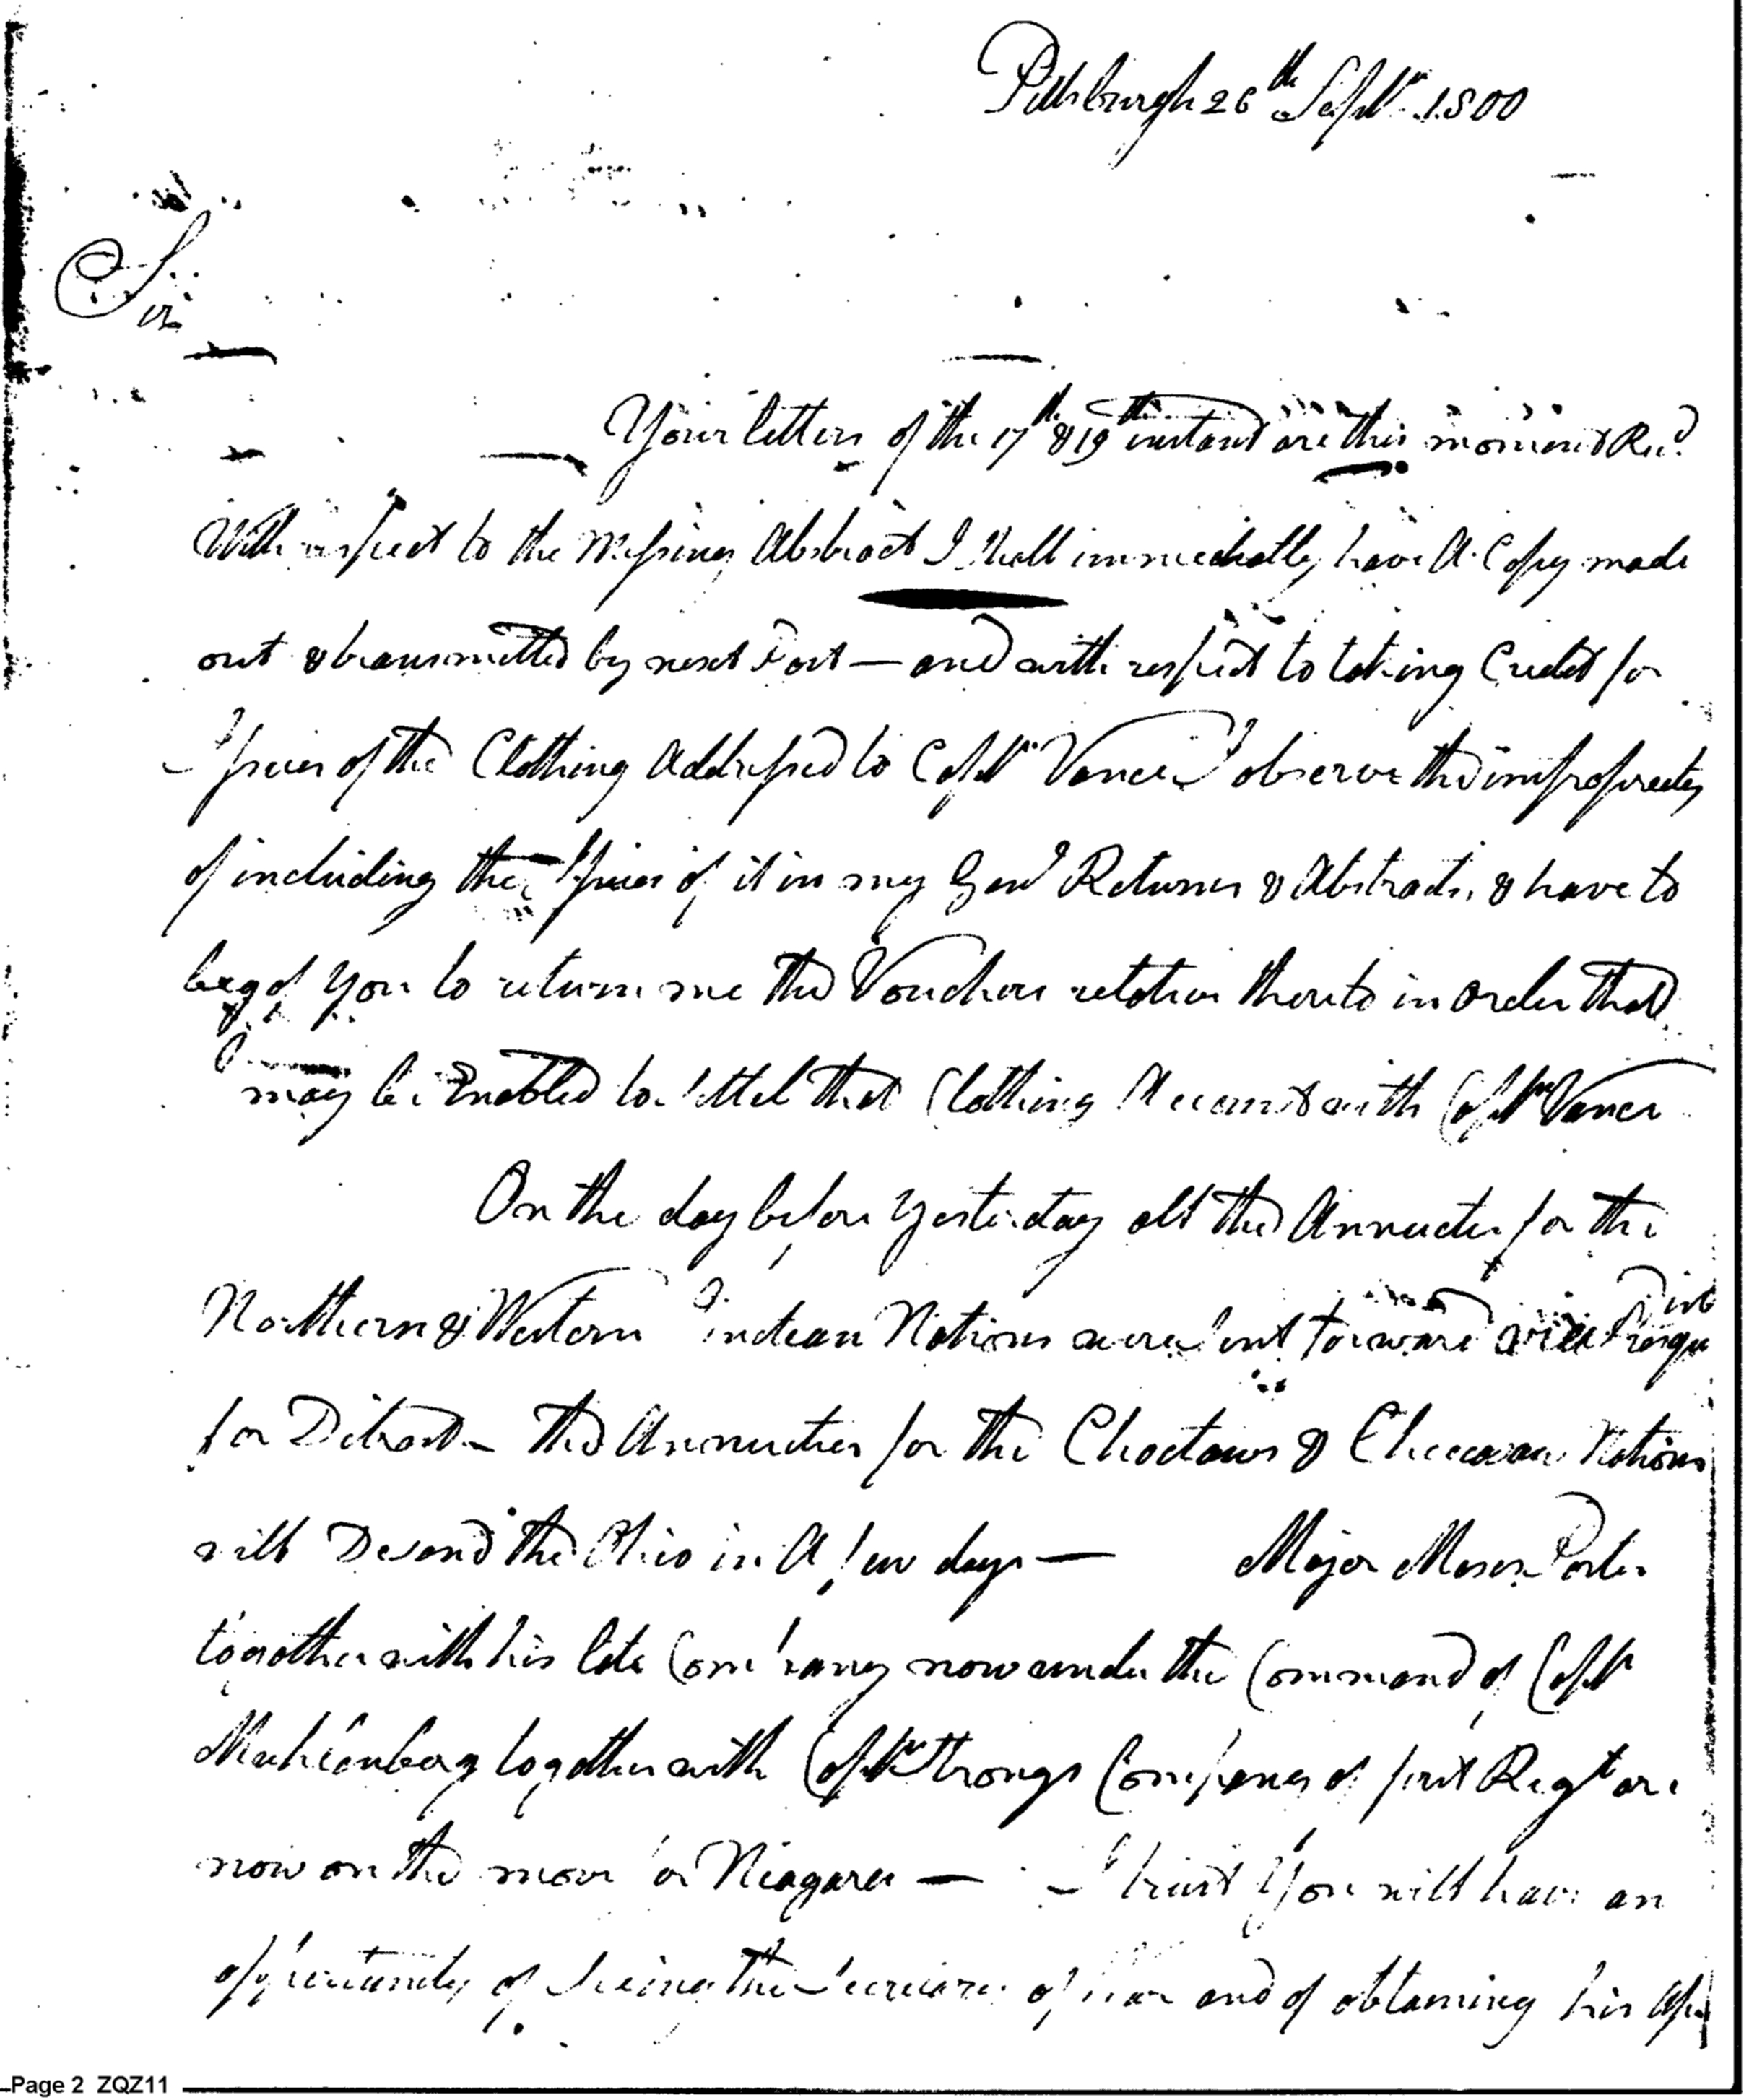 Pittsburgh 26th Septr. 1800
Sir
Your letters of the 17th & 19th instant are this moment Recd.
With respect to the Missing Abstract I shall immediatly have A Copy made
out & transmitted by next Post — and with respect to taking Credit for
Issues of the Clothing Addressed to Captn. Vance I observe the improprety
of including the Issues of it in my Genl Returns & Abstracts, & have to
beg of you to return me the Vouchers relative thereto in order that
I may be Enabled to settel that Clothing Account with Captn Vance
On the day before yesterday all the Annueties for the
Northern & Western Indean Nations were sent forward via Presqu Isle
for Detroit — the Annueties for the Choctaws & Checcasau Nations
will Decend the Ohio in A few days — Major Moses Porter
together with his late Company now under the Command of Captn
Muhlenberg together with Captn Strongs Company of first Regt are
now on the move for Niagara — I trust you will have an
opportunity of seeing the Secretary of War and of obtaining his
Page 2 ZQZ11